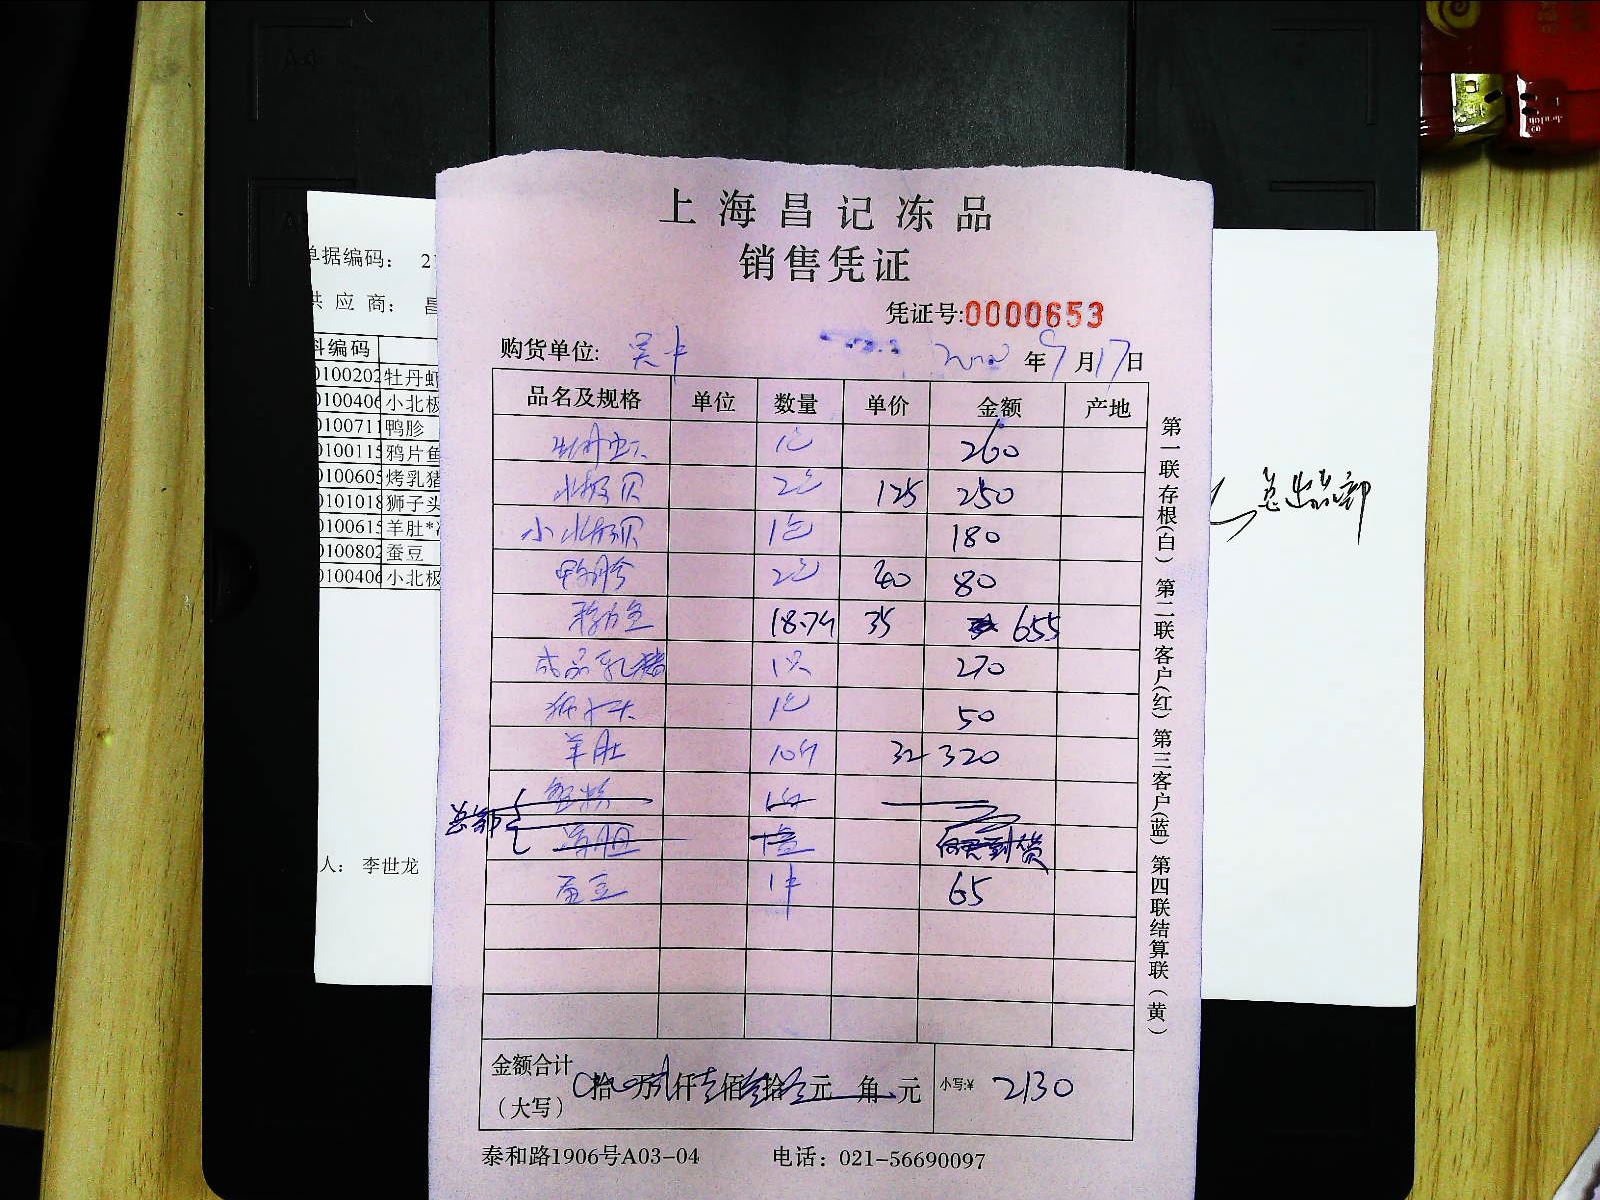 上海昌记冻品
销售凭证
凭证号:0000653
购货单位: 吴中 年9月17日
品名及规格 单位 数量 单价 金额 产地
牡丹虾 1包 260
北极贝 2包 125 250
小北极贝 1包 180
鸭胗 2包 40 80
18.7斤 35 655
成品乳猪 1只 270
狮子头 1包 50
羊肚 10斤 32 320
总部
蚕豆 1件 65
金额合计
(大写) 拾 万 贰仟壹佰叁拾 元 角 元 小写:¥ 2130
泰和路1906号A03-04 电话: 021-56690097
第一联存根(白) 第二联客户(红) 第三客户(蓝) 第四联结算联(黄)
单据编码: 2
供应商: 昌
料编码
0100202 牡丹虾
0100406 小北极
0100711 鸭胗
0100115 鸦片鱼
0100605 烤乳猪
0101018 狮子头
0100615 羊肚*
0100802 蚕豆
0100406 小北极
人: 李世龙